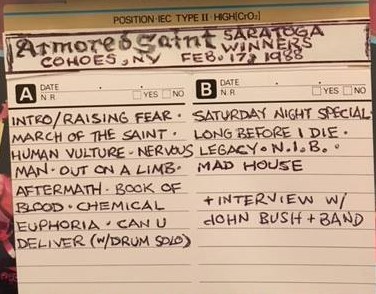 POSITION·IEC TYPE II·HIGH[CrO2]
Armored Saint SARATOGA WINNERS
COHOES, NY FEB. 17, 1988
A DATE . .
N R YES NO
INTRO/RAISING FEAR·
MARCH OF THE SAINT·
HUMAN VULTURE·NERVOUS
MAN·OUT ON A LIMB·
AFTERMATH·BOOK OF
BLOOD·CHEMICAL
EUPHORIA·CAN U
DELIVER (W/DRUM SOLO)
B DATE . .
N R YES NO
SATURDAY NIGHT SPECIAL
LONG BEFORE I DIE·
LEGACY·N.I.B.·
MAD HOUSE
+INTERVIEW W/
JOHN BUSH+BAND